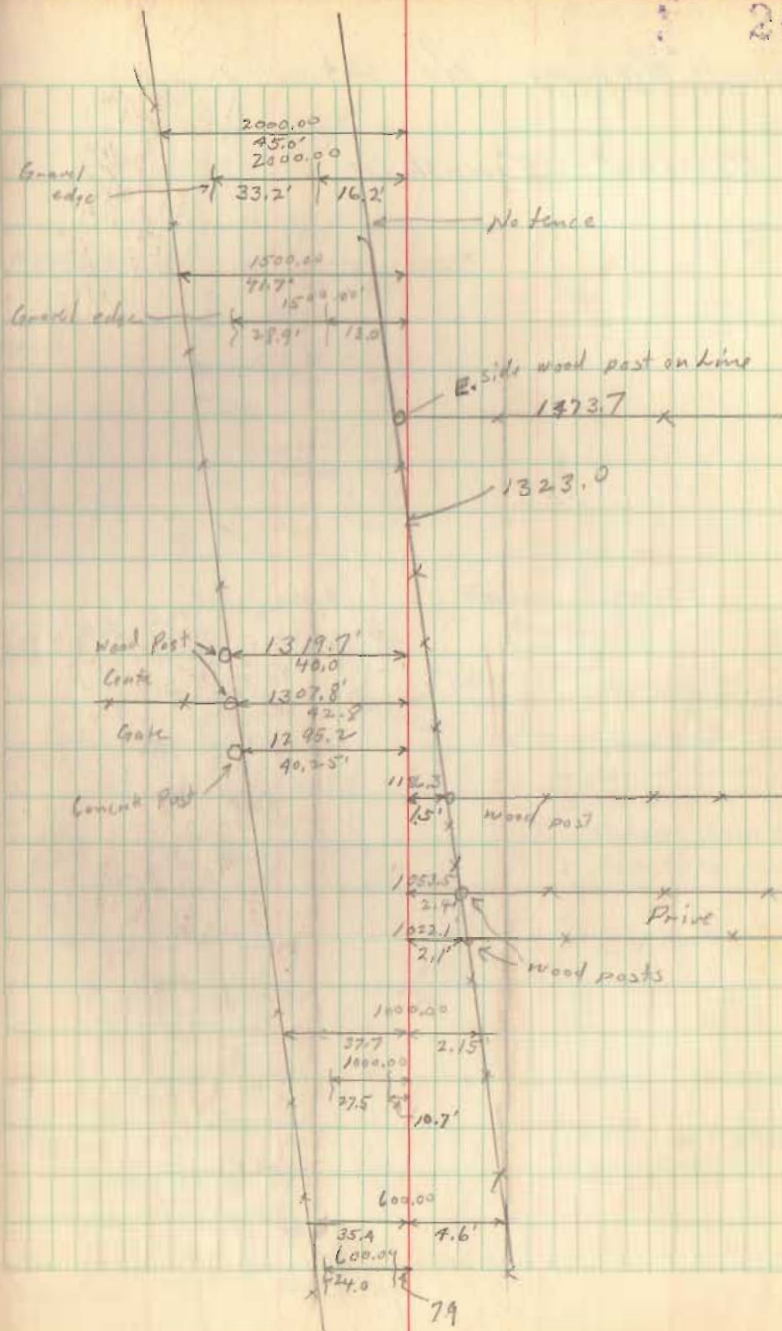 2
2000.00
45.0'
2000.00
Gravel
edge
33.2' 16.2'
No fence
1500.00
41.7'
1500.00'
Gravel edge
28.9' 13.0
E. side wood post on Line
1473.7
1323.0
Wood Post
1319.7'
40.0
Gate
1307.8'
42.8
Gate
1295.2
40.25'
Concrete Post
1186.3
1.5'
wood post
1053.5'
2.4'
Drive
1022.1'
2.1'
wood posts
1000.00
37.7 2.15'
1000.00
27.5
10.7'
600.00
35.4 4.6'
600.00
24.0
7.9